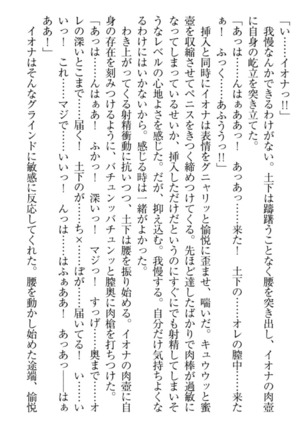 「い……イオナっ!!」
我慢なんかできるわけがない。土下は躊躇うことなく腰を突き出し、イオナの肉壺
に自身の屹立を突き立てた。
「あっは……んはぁああっ！　あっあっ……来た！　土下の……オレの膣中……来た
ぁ！　ふっく……あふううっ!!」
挿入と同時にイオナは表情をグニャリッと愉悦に歪ませ、喘いだ。キュウウッと蜜
壺を収縮させてペニスをきつく締めつけてくる。先ほど達したばかりで肉棒が過敏に
なってしまっているせいか、挿入しただけだというのにすぐにでも射精してしまいそ
うなレベルの心地よさを感じた。だが、抑え込む。我慢する。自分だけ気持ちよくな
るわけにはいかないから。感じる時は一緒がよかった。
わき上がってくる射精衝動に抗いつつ、土下は腰を振り始める。イオナの肉壺に自
身の存在を刻みつけるように、バチュンッバチュンッと膣奥に肉槍を打ちつけた。
「あっは……んはぁあ！　ふかっ！　深いっ！　マジっ！　すっげ……奥まで……オ
レの深いとこまで……届く！　土下のが……ち×……ぽが……届いてる！　い……い
いっ！　これ……マジで……いいっ！　んっは……はふぁああ！　あっあっ――はぁ
ああ！」
イオナはそんなグラインドに敏感に反応してくれた。腰を動かし始めた途端、愉悦